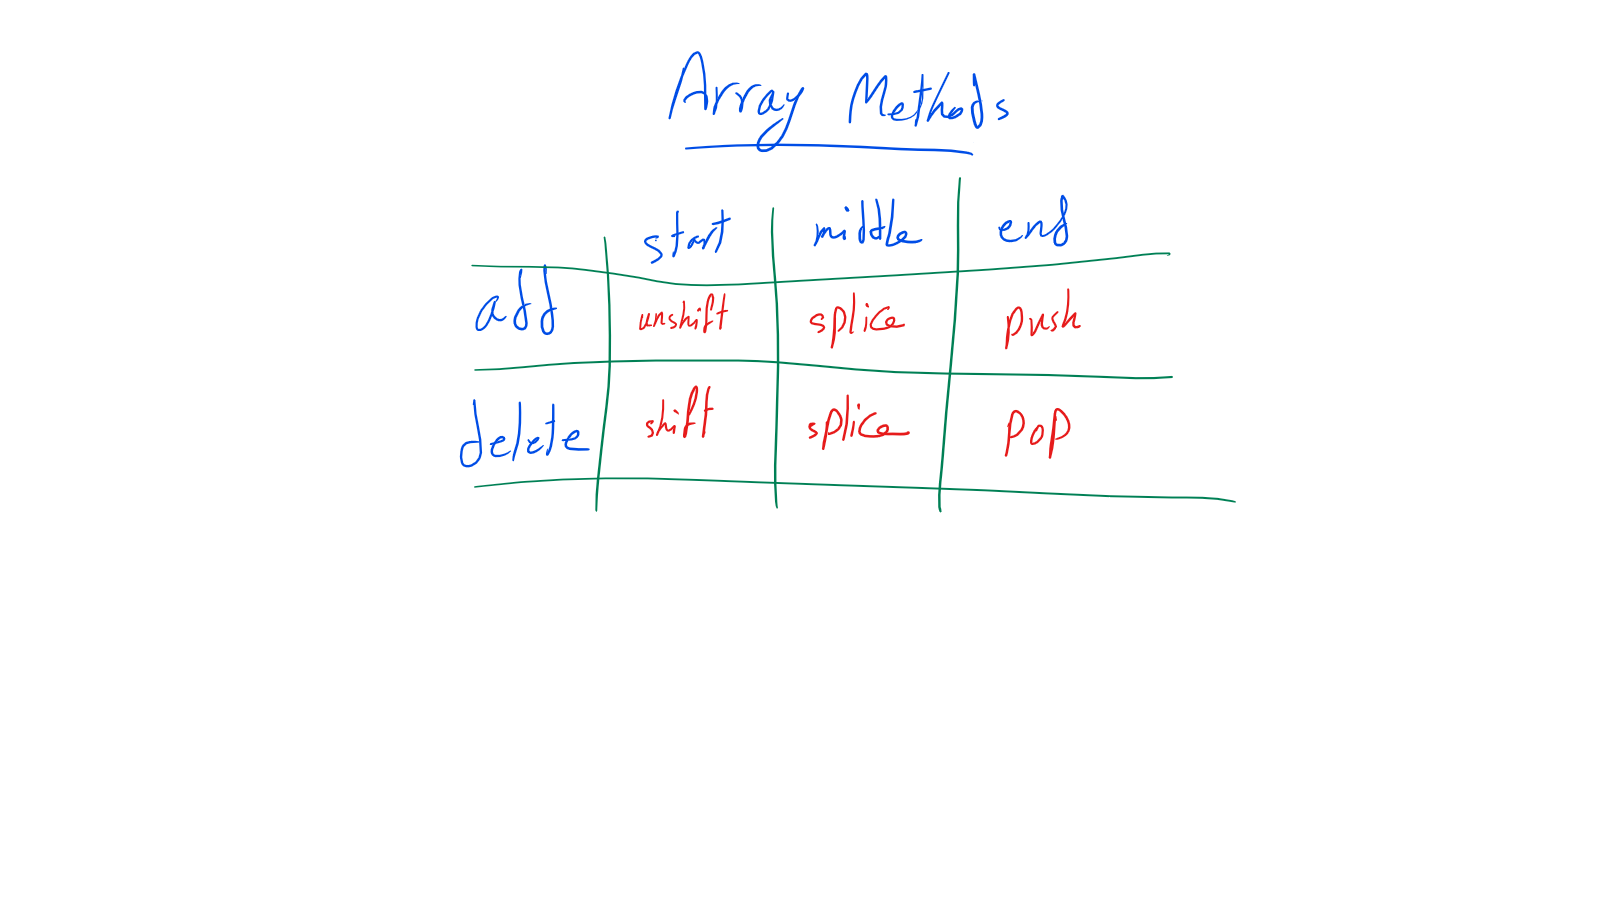 Array Methods
start middle end
add unshift splice push
delete shift splice pop